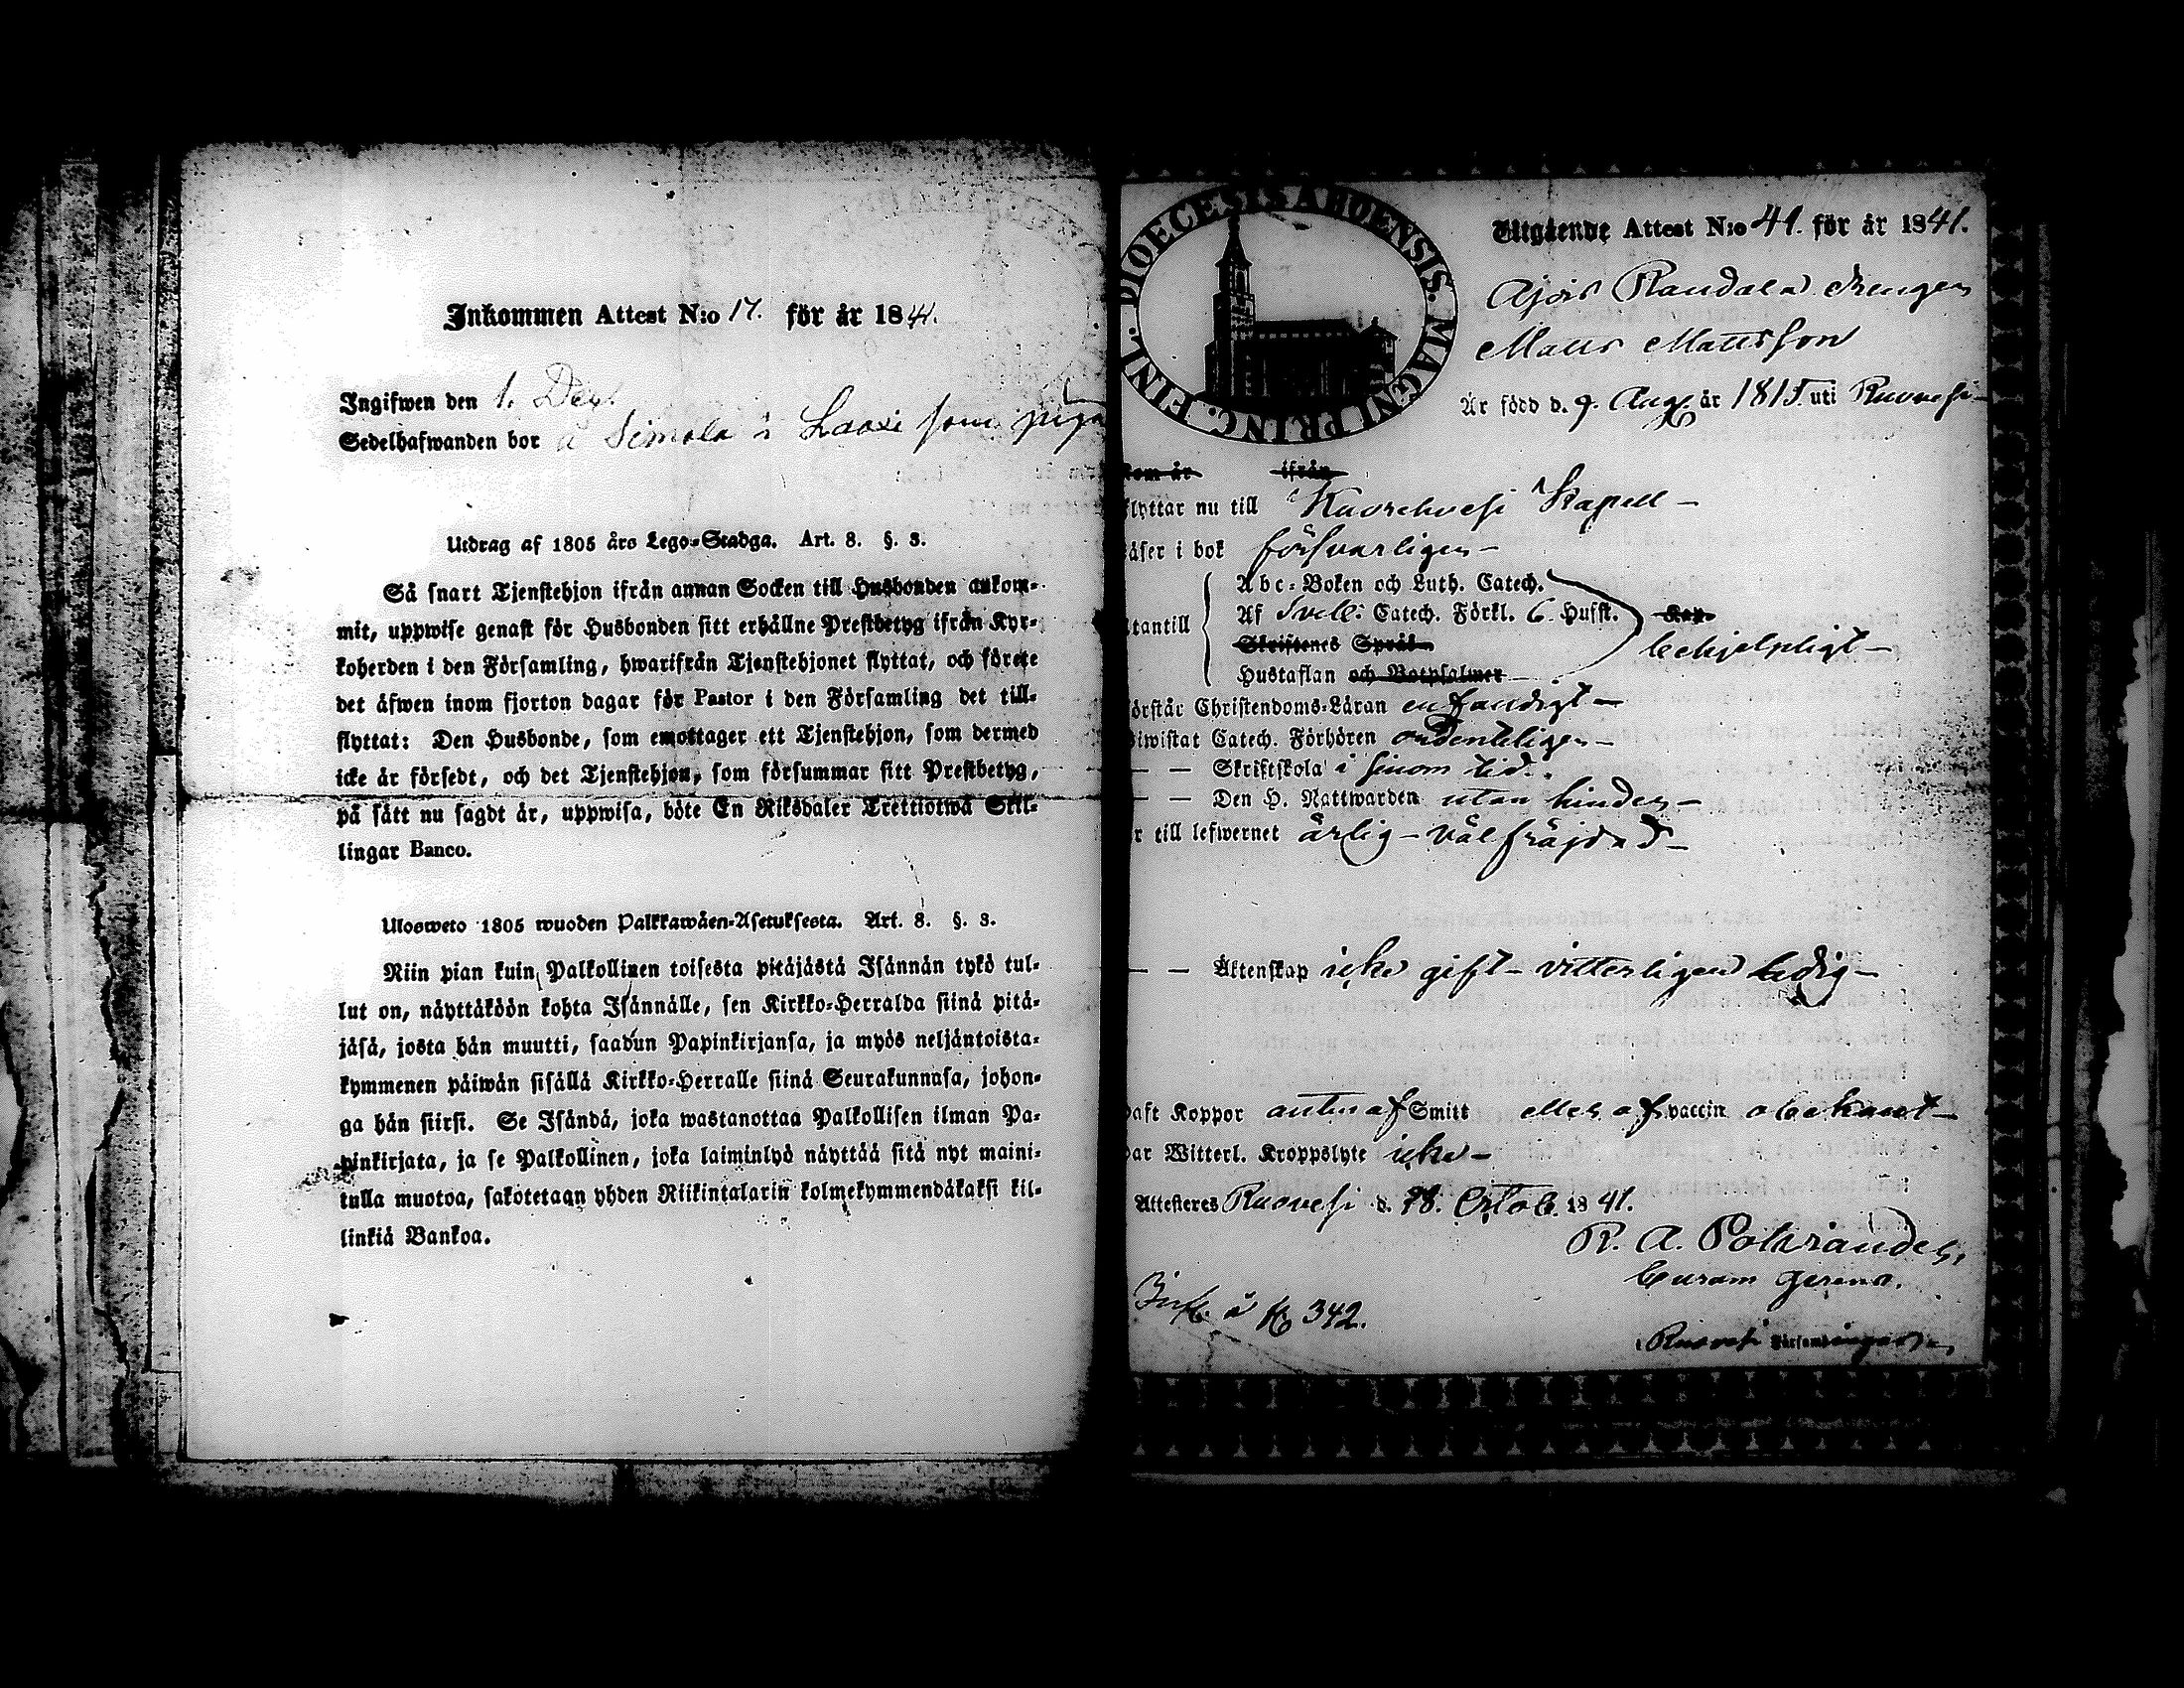 Inkommen Attest N:o 17. för år 1841.
Ingifwen den 1. Dec.
Sedelhafwanden bor å Simola i Laasi som piga
Utdrag af 1805 års Lego-Stadga. Art. 8. §. 3.
Så snart Tjenstehjon ifrån annan Socken till Husbonden ankom-
mit, uppwise genast för Husbonden sitt erhållne Prestbetyg ifrån Kyr-
koherden i den Församling, hwarifrån Tjenstehjonet flyttat, och förete
det äfwen inom fjorton dagar för Pastor i den Församling det till-
flyttat: Den Husbonde, som emottager ett Tjenstehjon, som dermed
icke är försedt, och det Tjenstehjon, som försummar sitt Prestbetyg,
på sätt nu sagdt är, uppwisa, böte En Riksdaler Trettiotwå Skil-
lingar Banco.
Ulosweto 1805 wuoden Palkkawäen-Asetuksesta. Art. 8. §. 3.
Niin pian kuin Palkollinen toisesta pitäjästä Isännän tykö tul-
lut on, näyttäköön kohta Isännälle, sen Kirkko-Herralda siinä pitä-
jäsä, josta hän muutti, saadun Papinkirjansa, ja myös neljäntoista-
kymmenen päiwän sisällä Kirkko-Herralle siinä Seurakunnasa, johon-
ga hän siirsi. Se Isändä, joka wastanottaa Palkollisen ilman Pa-
pinkirjata, ja se Palkollinen, joka laiminlyö näyttää sitä nyt maini-
tulla muotoa, sakotetaan yhden Riikintalarin kolmekymmendäkaksi kil-
linkiä Bankoa.
DIOECESIS ABOENSIS. MAGNI PRINC. FINL.
Utgående Attest N:o 41. för år 1841.
Drengen
Matts Mattsson
Är född d. 9. Aug. år 1815. uti Ruovesi
kom år ifrån
flyttar nu till Kuorehvesi Kapell
läser i bok försvarligen
Abc-Boken och Luth. Catech.
utantill Af Sveb: Catech. Förkl. 6 Hufst. Kap.
Skriftenes Språk behjelpligt
Hustaflan och Botpsalmer
förstår Christendoms-Läran enfaldigt
biwistat Catech. Förhören ordenteligen
— — Skriftskola i sinom tid.
— — Den H. Nattwarden utan hinder
är till lefwernet ärlig – väl fräjdad
— — Äktenskap icke gift – vitterligen ledig
haft Koppor antin af Smitt eller af vaccin obekant
har Witterl. Kroppslyte icke
Attesteres Ruovesi d. 28. Octob. 1841.
R. A. Polviander,
Curam gerens.
Infl. å 342.
Ruovesi Församlingar